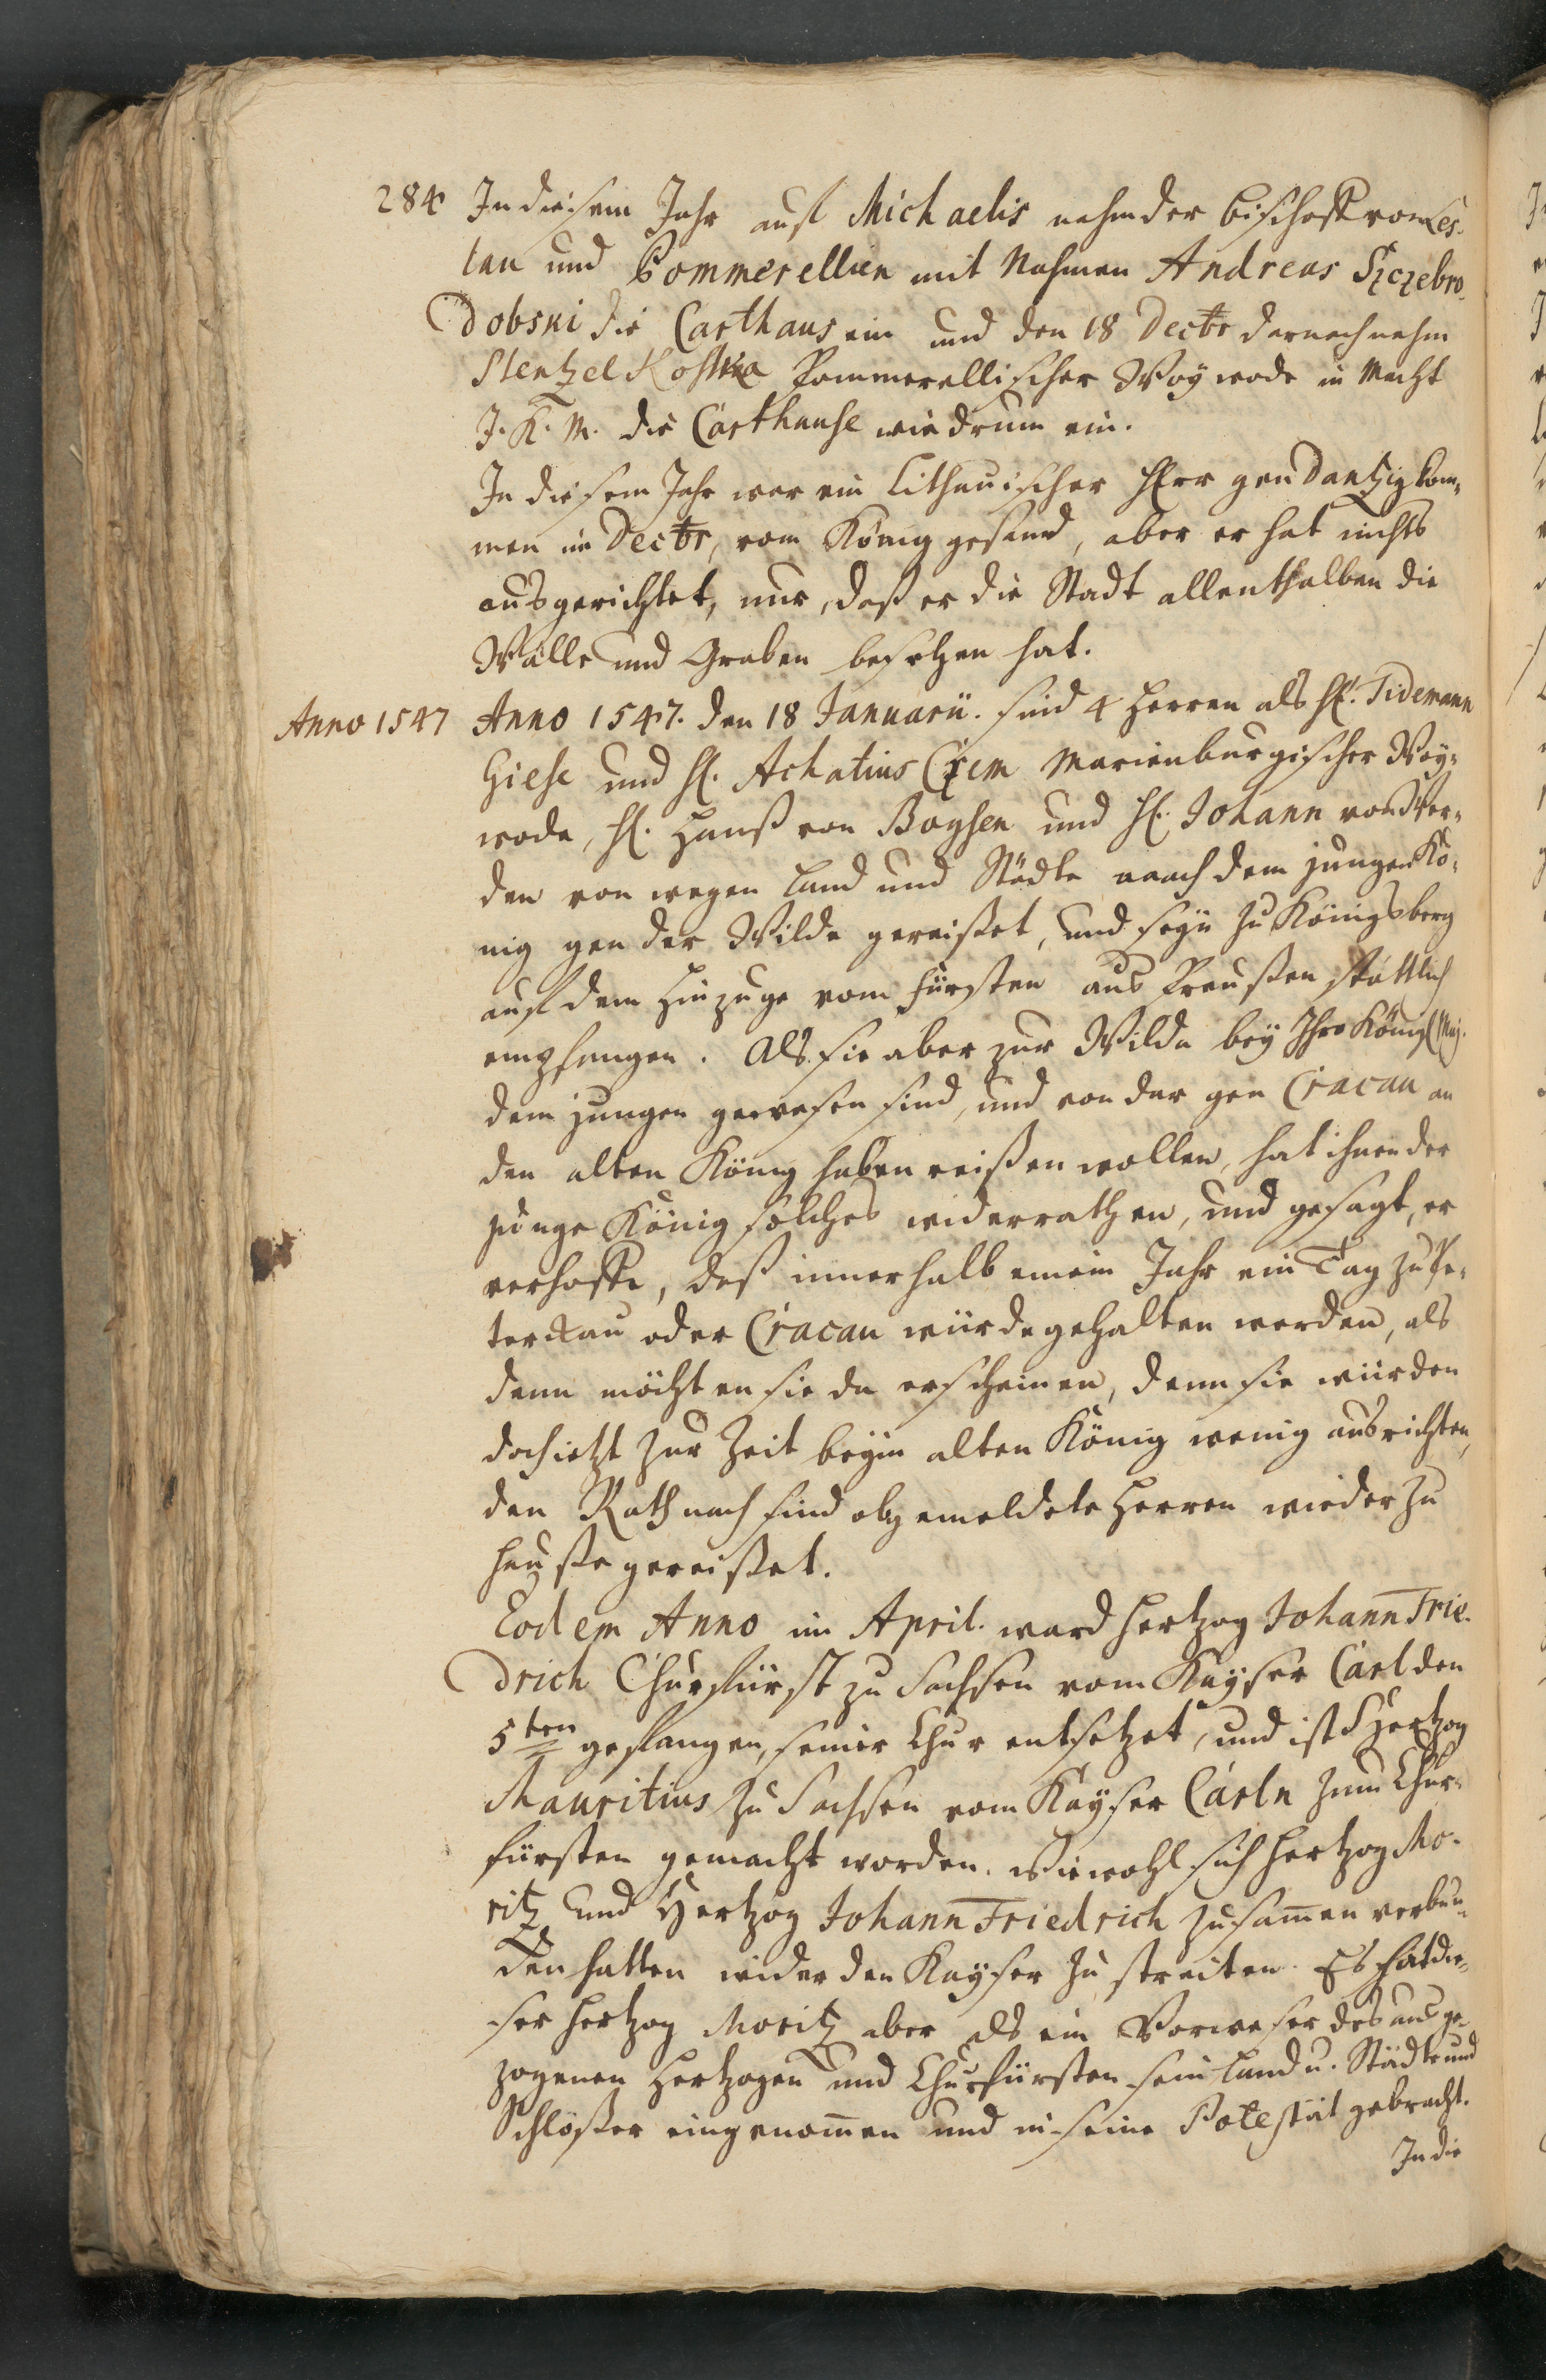 284 In diesem Jahr auf Michaelis nahm der Bischoff von Les-
lau und Pommerellien mit Nahmen Andreas Szczebro-
dobski die Carthaus ein und den 18 Decbr darnach nahm
Stentzel Kostka Pommerellischer Woywode in Macht
J. K. M. die Carthause wiedrum ein.
In diesem Jahr war ein Lithauischer Herr gen Dantzig kom-
men im Decbr, vom König gesand, aber er hat nichts
ausgerichtet, nur, daß er die Stadt allenthalben die
Wälle und Graben besehen hat.
Anno 1547 Anno 1547. den 18 Januarii. sind 4 Herren als H. Tidemann
Giese und H. Achatius Czem Marienburgischer Woy-
wode, H. Hanß von Baysen und H. Johann von Wer-
den von wegen Land und Städte naach dem jungen Kö-
nig gen der Wilde gereißet, und seyn zu Königsberg
auf dem Hinzuge vom Fürsten aus Preußen stattlich
empfangen. Als sie aber zur Wilda bey Ihro Königl Maj.
dem jungen gewesen sind, und von dar gen Cracau an
den alten König haben reißen wollen, hat ihnen der
junge König solches widerrathen, und gesagt, er
verhoffe, daß innerhalb einem Jahr ein Tag zu Pe-
terckau oder Cracau würde gehalten werden, als
denn möchten sie da erscheinen, denn sie würden
doch ietzt zur Zeit beym alten König wenig ausrichten,
den Rath nach sind obgemeldete Herren wieder zu
Hauße gereißet.
Eodem Anno im April. ward Hertzog Johann Frie-
drich Churfürst zu Sachsen vom Kayser Carl den
5ten gefangen, seiner Chur entsetzet, und ist Hertzog
Mauritius zu Sachsen vom Kayser Carln zum Chur-
fürsten gemacht worden. Wiewohl sich Hertzog Mo-
ritz und Hertzog Johann Friedrich zusam̅en verbun-
den hatten wider den Kayser zu streiten. Es hat die-
ser Hertzog Moritz aber als ein Verweser des ausge-
zogenen Hertzogen und Churfürsten sein Land u. Städte und
Schlößer eingenom̅en und in seine Potestät gebracht.
In die